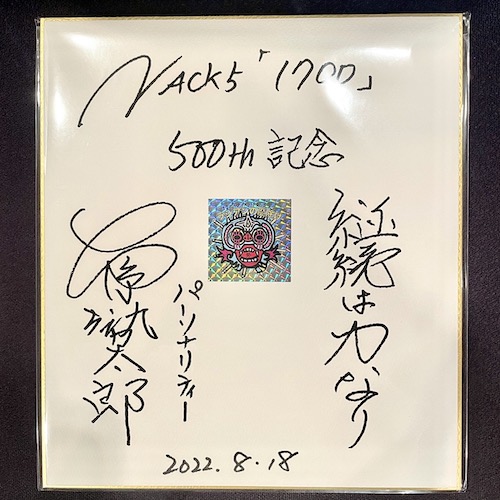 NACK5「1700」
500th 記念
継続は力なり
パーソナリティー
太郎
2022.8.18